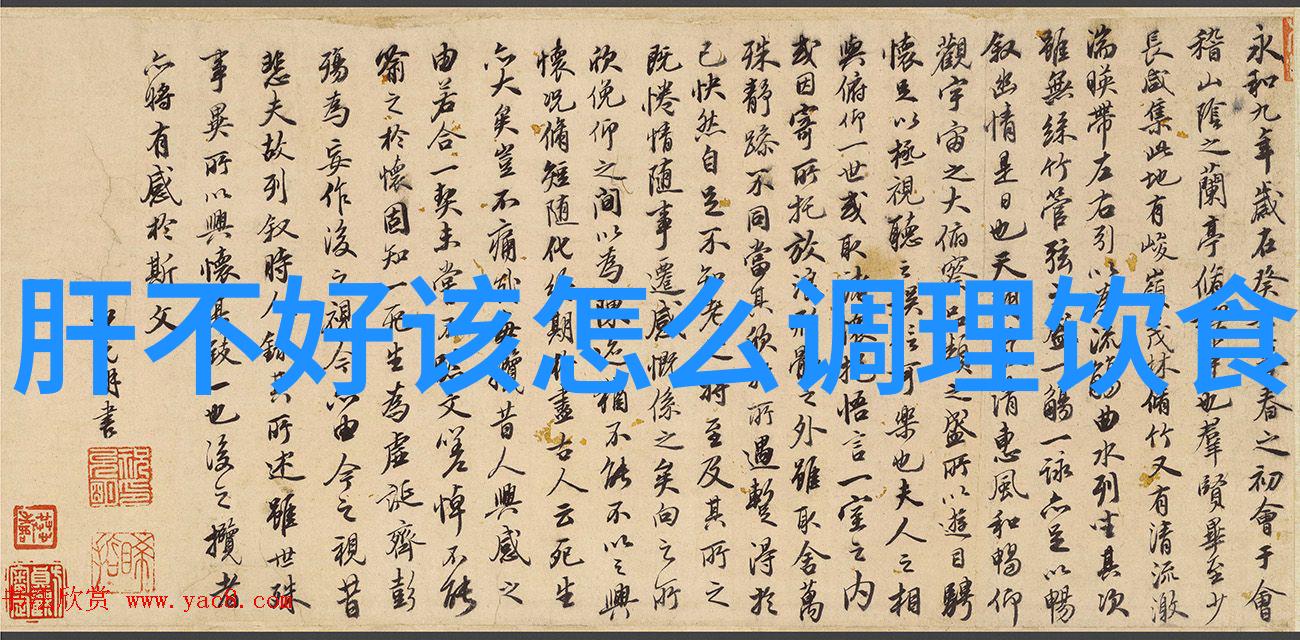 肝不好该怎么调理饮食
永和九年歲在癸春之初會于會
稽山陰之蘭亭脩也羣賢畢至少
長咸集此地有峻嶺茂林脩竹又有清流激
湍暎帶左右引以為流觴曲水列坐其次
雖無絲竹管弦之盛一觴一詠亦足以暢
叙幽情是日也天朗清惠風和暢仰
觀宇宙之大俯察品類之盛所以遊目騁
懷足以極視聽之娛可樂也夫人之相
與俯仰一世或取諸懷抱悟言一室之內
或因寄所托放浪形骸之外雖取舍萬
殊靜躁不同當其欣於所遇暫得於
己快然自足不知老之將至及其所之
既惓情隨事遷感慨係之矣向之所
欣俛仰之間以為陳迹猶不能不以之興
懷況脩短隨化終期於盡古人云死生
亦大矣豈不痛哉每攬昔人興感之
由若合一契未嘗不臨文嗟悼不能
喻之於懷固知一死生為虛誕齊彭
殤為妄作後之視今亦由今之視昔
悲夫故列叙時人錄其所述雖世殊
事異所以興懷其致一也後之攬者
亦將有感於斯文
允明書
欣赏 www.yac8.com